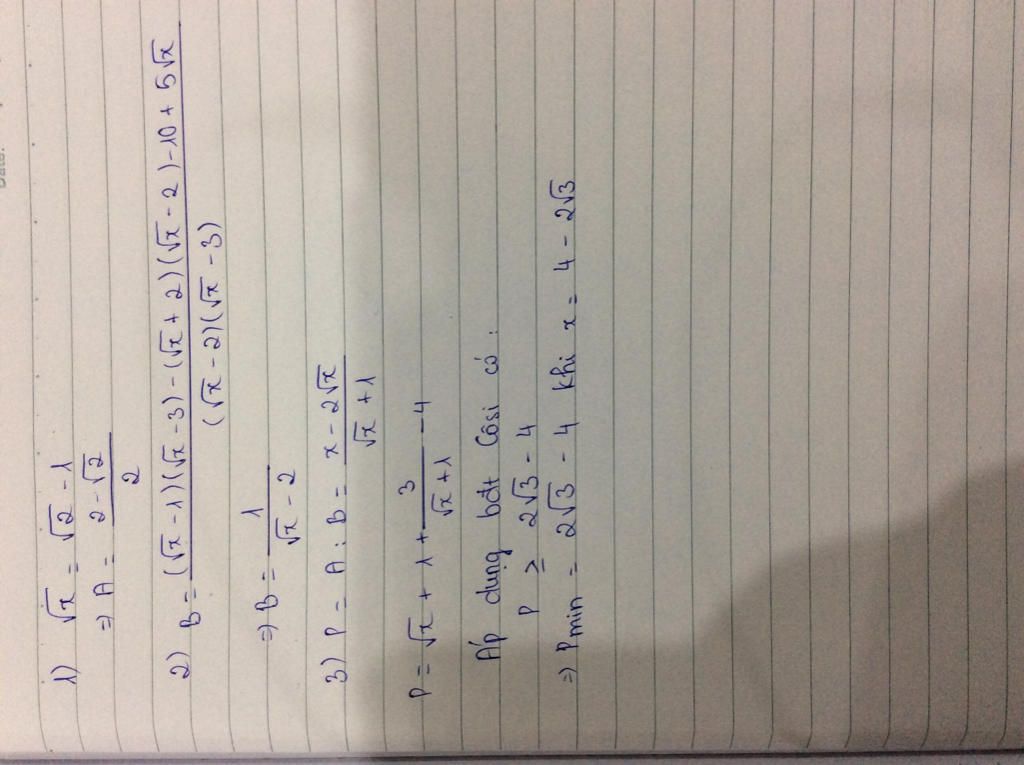 Date:
1) √x = √2 - 1
⇒ A = (2 - √2)/2
2) B = ((√x - 1)(√x - 3) - (√x + 2)(√x - 2) - 10 + 5√x)/((√x - 2)(√x - 3))
⇒ B = 1/(√x - 2)
3) P = A : B = (x - 2√x)/(√x + 1)
P = √x + 1 + 3/(√x + 1) - 4
Áp dụng bđt Côsi có :
P ≥ 2√3 - 4
⇒ Pmin = 2√3 - 4 khi x = 4 - 2√3